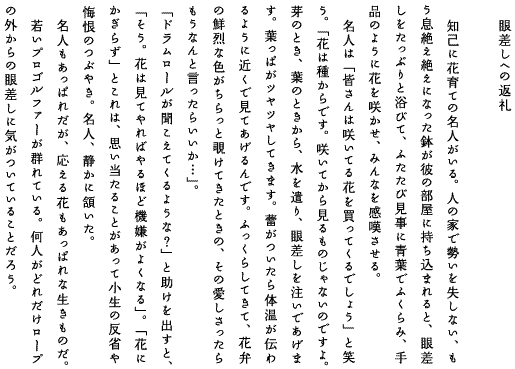 眼差しへの返礼
知己に花育ての名人がいる。人の家で勢いを失しない、も
う息絶え絶えになった鉢が彼の部屋に持ち込まれると、眼差
しをたっぷりと浴びて、ふたたび見事に青葉でふくらみ、手
品のように花を咲かせ、みんなを感嘆させる。
名人は「皆さんは咲いてる花を買ってくるでしょう」と笑
う。「花は種からです。咲いてから見るものじゃないのですよ。
芽のとき、葉のときから、水を遣り、眼差しを注いであげま
す。葉っぱがツヤツヤしてきます。蕾がついたら体温が伝わ
るように近くで見てあげるんです。ふっくらしてきて、花弁
の鮮烈な色がちらっと覗けてきたときの、その愛しさったら
もうなんと言ったらいいか…」。
「ドラムロールが聞こえてくるような？」と助けを出すと、
「そう。花は見てやればやるほど機嫌がよくなる」。「花に
かぎらず」とこれは、思い当たることがあって小生の反省や
悔恨のつぶやき。名人、静かに頷いた。
名人もあっぱれだが、応える花もあっぱれな生きものだ。
若いプロゴルファーが群れている。何人がどれだけロープ
の外からの眼差しに気がついていることだろう。